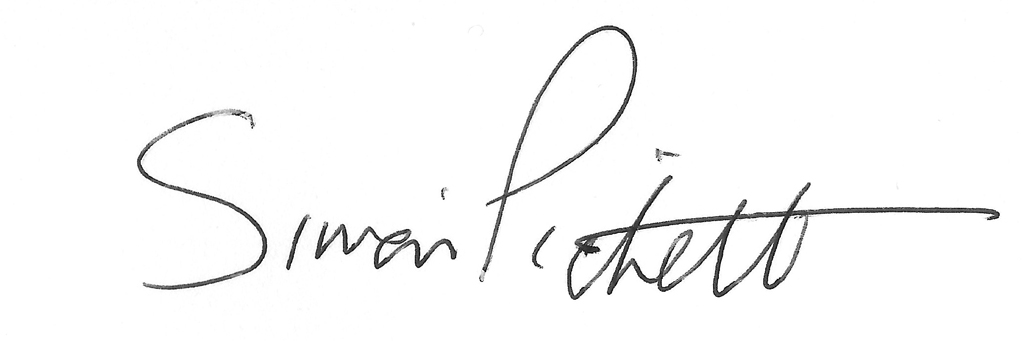 Simon Pickett